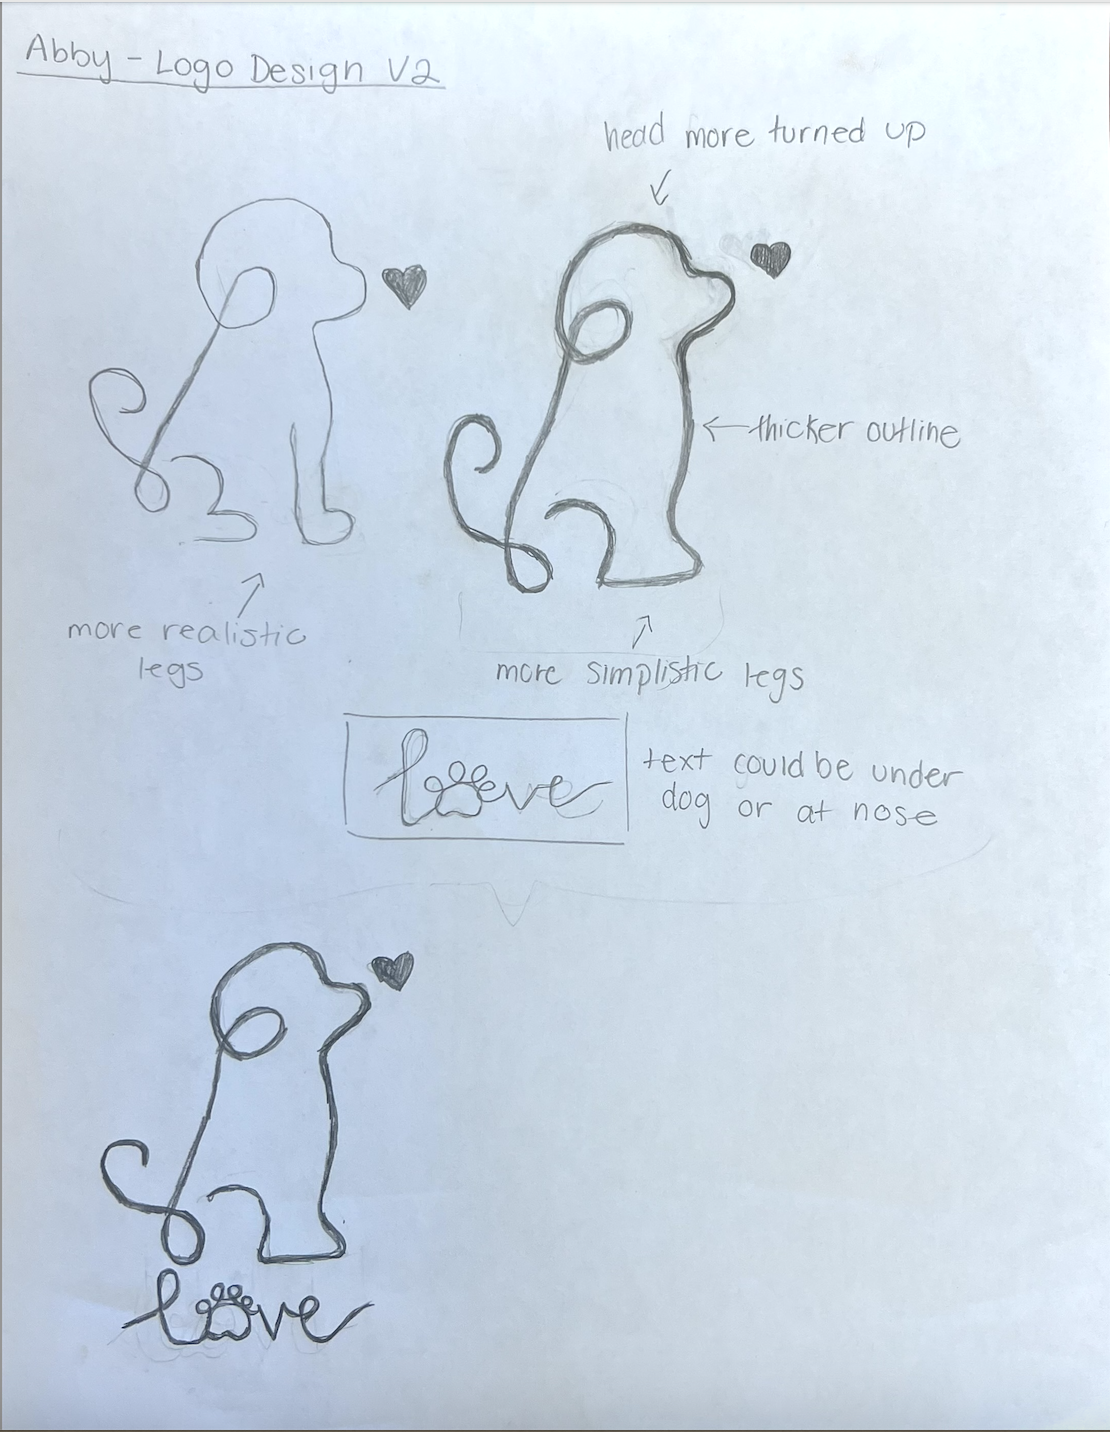 Abby - Logo Design V2
head more turned up
thicker outline
more realistic
legs
more simplistic legs
love
text could be under
dog or at nose
love